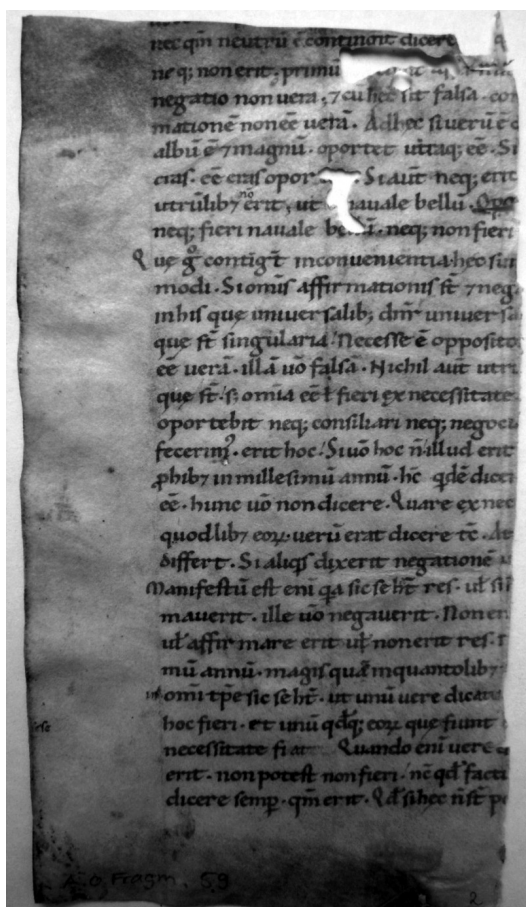 nec qm̄ neutrū ē contingit dicere
neq; non erit. primū
negatio non vera. ⁊ cū hec sit falsa. con
mationē non eē verā. Ad hec si verū ē
albū ē ⁊ magnū. oportet utraq; eē. Si
cras. eē cras opor Si aūt neq; erit
utrūlibꝫ no erit, ut navale bellū. Opo
neq; fieri navale bellū. neq; non fieri
Que gͦ contigt̄ inconvenientia hec su
modi. Si om̄is affirmationis st̄ ⁊ neg
in his que in universalib; dn̄r universa
que st̄ singularia. Necesse ē opposito
eē verā. illā v̄o falsā. Nichil aūt utrū
que st̄. s; om̄ia eē ł fieri ex necessitate
oportebit neq; consiliari neq; negoci
fecerimꝰ. erit hoc. Si v̄o hoc n̄ illud erit
phibꝫ in millesimū annū. hc̄ qdē dice
eē. hunc v̄o non dicere. Quare ex nec
quodlibꝫ eoꝝ. verū erat dicere tc̄. At
differt. Si aliqs dixerit negationē
Manifestū est eni qa sic se hn̄t res. ul̄ si
maverit. ille v̄o negaverit. Non en
ul̄ affirmare erit ul̄ non erit res.
mū annū. magis quā in quantolibꝫ
in om̄i tp̄e sic se ht̄. ut unū vere dicare
hoc fieri. et unū qdq; eoꝝ que fiunt
necessitate fiat Quando enī vere
erit. non potest non fieri. nc̄ qd̄ facti
dicere semp̱. qm̄ erit. Qd̄ si hec n̄ st̄ po
Fragm. 69
2